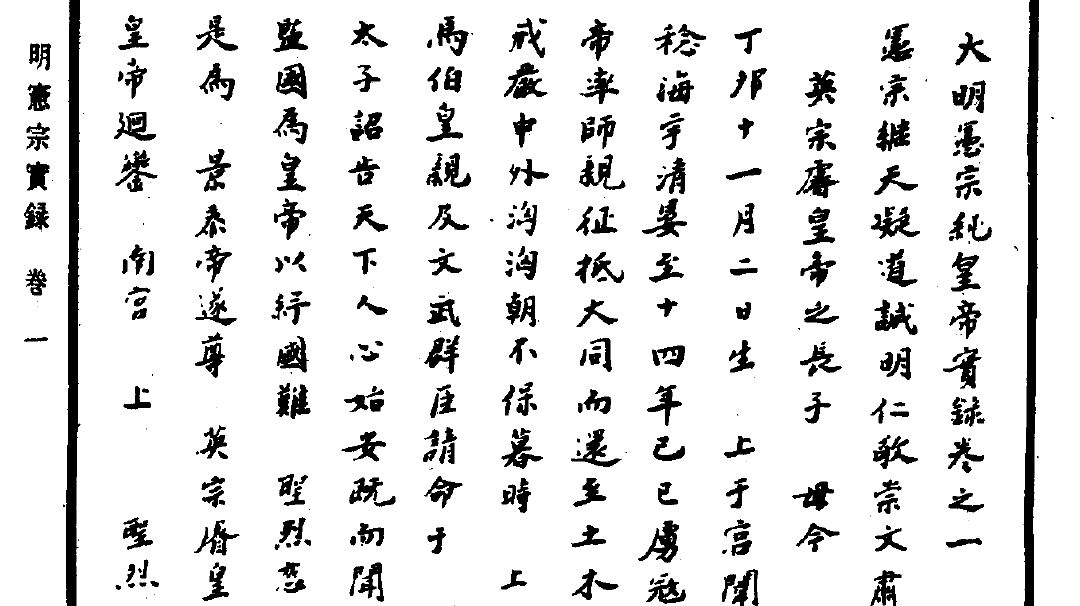 大明憲宗純皇帝實録卷之一
憲宗繼天凝道誠明仁敬崇文肅
英宗睿皇帝之長子　母今
丁卯十一月二日生　上于宫闈
稔海宇清晏至十四年己巳虜寇
帝率師親征抵大同而還至土木
戒嚴中外洶洶朝不保暮時　上
馬伯皇親及文武群臣請命于
太子詔告天下人心始安既而聞
監國為皇帝以紓國難　聖烈慈
是為　景泰帝遂尊　英宗睿皇
皇帝迴鑾　南宫　上　聖烈
明憲宗實録　卷一